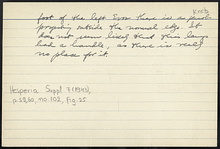 KWS
foot of the left Eros there is a
projecting outside the normal edge. It
does not seem likely that this lamp
had a handle, as there is really
no place for it.
Hesperia Suppl 7 (1943),
p. 260, no. 102, Fig. 25